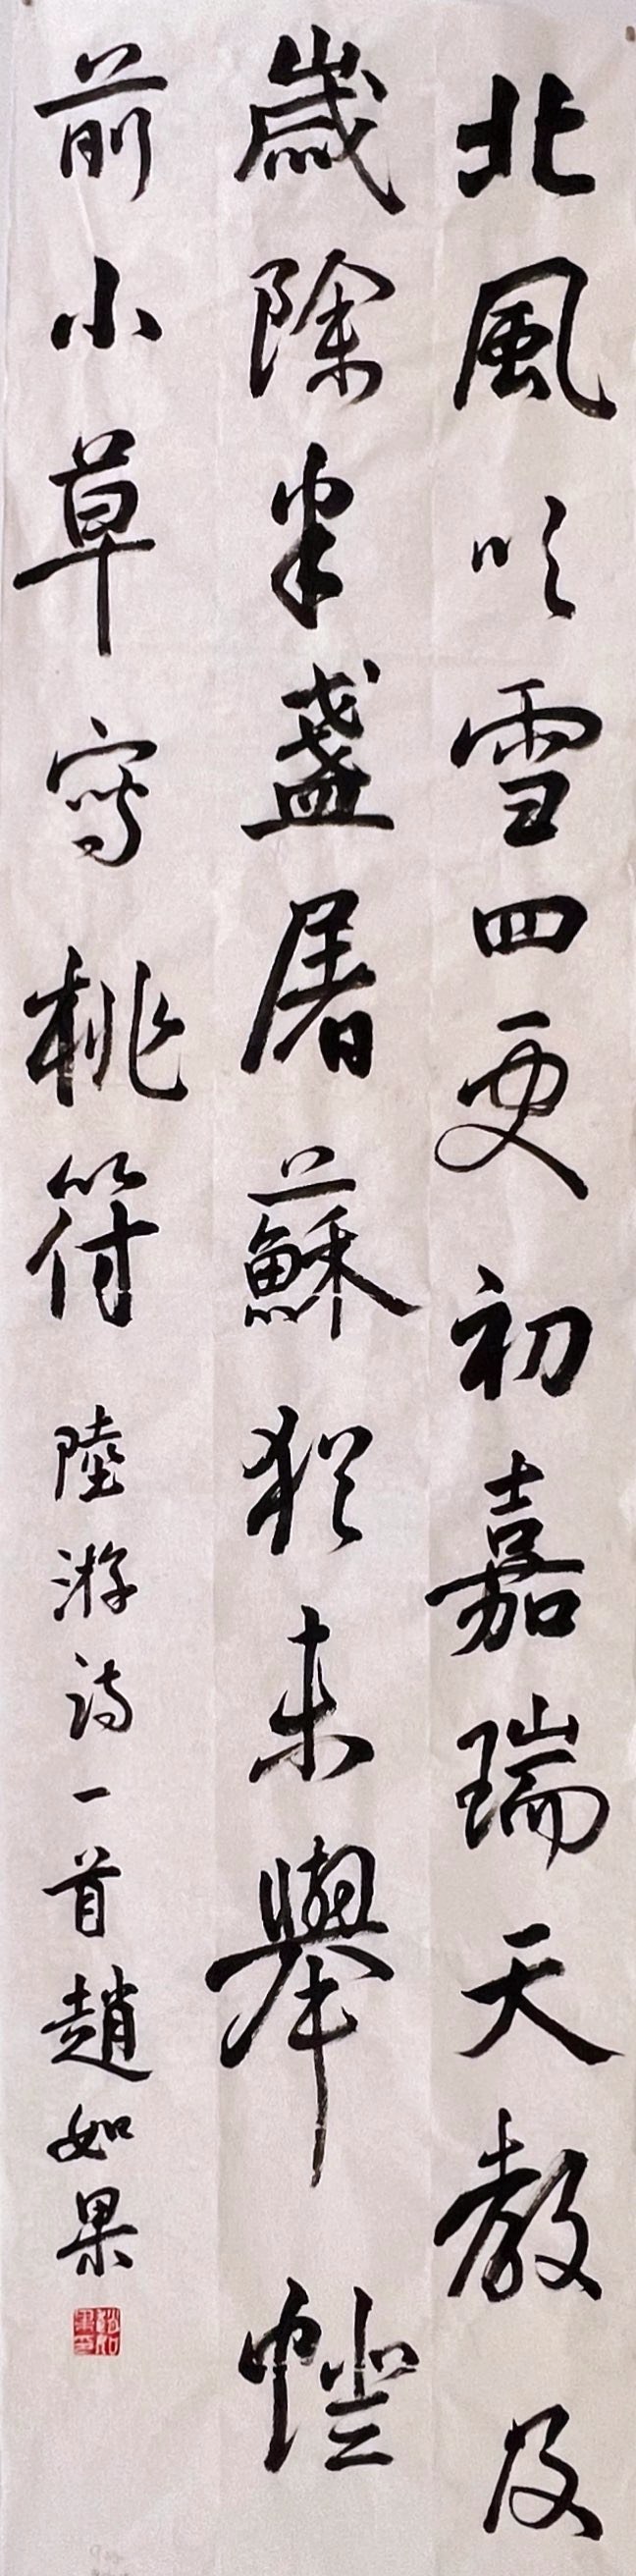 北風吹雪四更初嘉瑞天教及
歲除半盞屠蘇猶未舉燈
前小草寫桃符 陸游詩一首趙如果